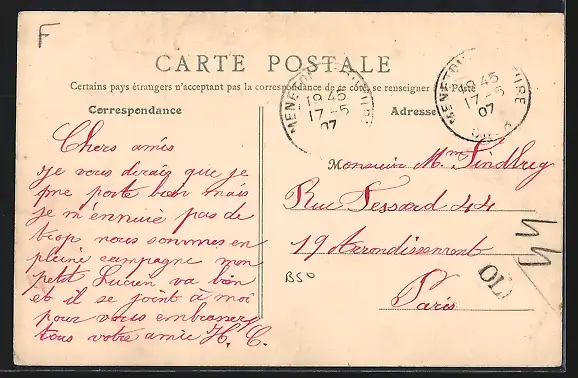 F
CARTE POSTALE
Certains pays étrangers n'acceptant pas la correspondance de ce côté, se renseigner à la Poste
Correspondance
Adresse
19 45
17 - 5
07
CHER
19 45
17 - 5
07
CHER
Chers amis
je vous dirais que je
me porte bien mais
je m'ennuie pas de
trop nous sommes en
pleine campagne mon
petit Lucien va bien
et il se joint à moi
pour vous embrasser
tous votre amie H. C.
Monsieur Mme Lindbreg
Rue Tessard 44
19 Arrondissement
Paris
B50
44
OL